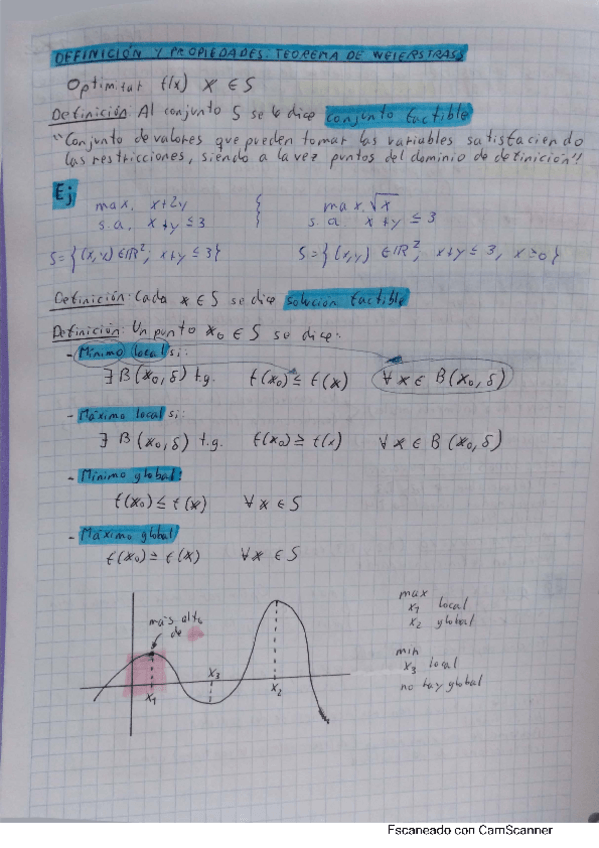 DEFINICIÓN Y PROPIEDADES. TEOREMA DE WEIERSTRASS
Optimizar f(x) x ∈ S
Definición: Al conjunto S se le dice conjunto factible
"Conjunto de valores que pueden tomar las variables satisfaciendo
las restricciones, siendo a la vez puntos del dominio de definición"
Ej
max. x+2y
s.a. x+y ≤ 3
S={(x,y) ∈ ℝ², x+y ≤ 3}
max. √x
s.a x+y ≤ 3
S={(x,y) ∈ ℝ², x+y ≤ 3, x≥0}
Definición: Cada x ∈ S se dice solución factible
Definición: Un punto x₀ ∈ S se dice:
- Mínimo local si:
∃ B(x₀,δ) t.q. f(x₀) ≤ f(x) ∀x ∈ B(x₀,δ)
- Máximo local si:
∃ B(x₀,δ) t.q. f(x₀) ≥ f(x) ∀x ∈ B(x₀,δ)
- Mínimo global:
f(x₀) ≤ f(x) ∀x ∈ S
- Máximo global
f(x₀) ≥ f(x) ∀x ∈ S
más alto
de
x₁
x₃
x₂
max
x₁ local
x₂ global
min
x₃ local
no hay global
Escaneado con CamScanner